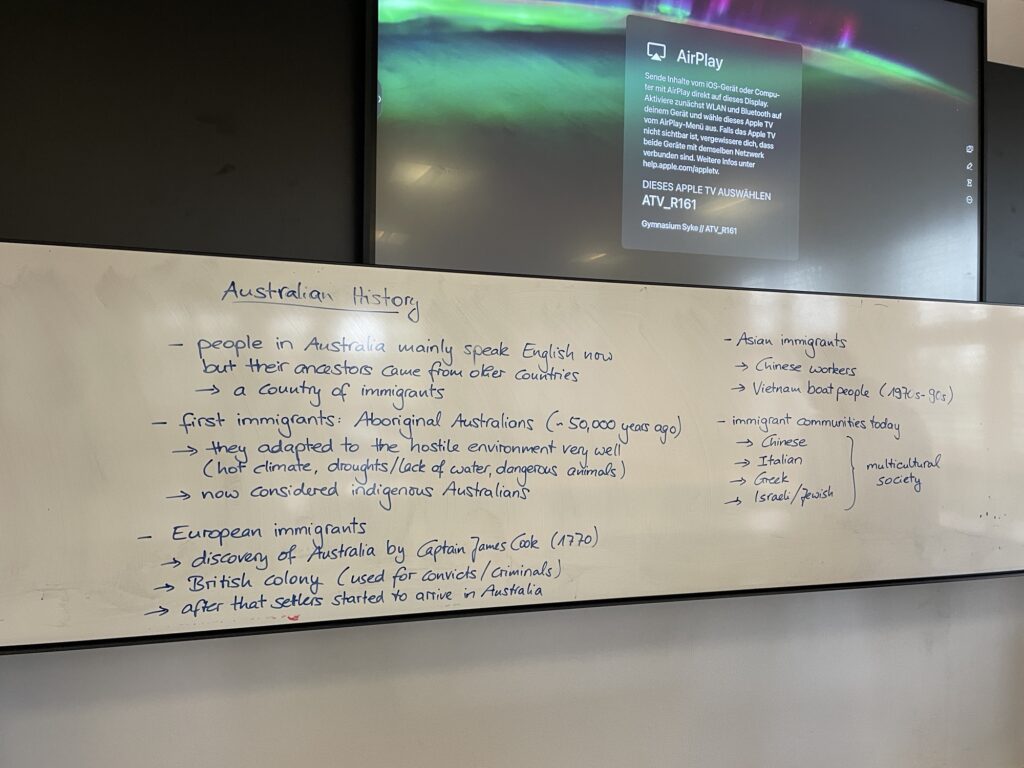 AirPlay
Sende Inhalte vom iOS-Gerät oder Compu-
ter mit AirPlay direkt auf dieses Display.
Aktiviere zunächst WLAN und Bluetooth auf
deinem Gerät und wähle dieses Apple TV
vom AirPlay-Menü aus. Falls das Apple TV
nicht sichtbar ist, vergewissere dich, dass
beide Geräte mit demselben Netzwerk
verbunden sind. Weitere Infos unter
help.apple.com/appletv.
DIESES APPLE TV AUSWÄHLEN
ATV_R161
Gymnasium Syke // ATV_R161
Australian History
- people in Australia mainly speak English now
but their ancestors came from other countries
→ a country of immigrants
- first immigrants: Aboriginal Australians (~ 50,000 years ago)
→ they adapted to the hostile environment very well
(hot climate, droughts/lack of water, dangerous animals)
→ now considered indigenous Australians
- European immigrants
→ discovery of Australia by Captain James Cook (1770)
→ British colony (used for convicts/criminals)
→ after that settlers started to arrive in Australia
- Asian immigrants
→ Chinese workers
→ Vietnam boat people (1970s-90s)
- immigrant communities today
→ Chinese
→ Italian
→ Greek
→ Israeli/Jewish
multicultural
society